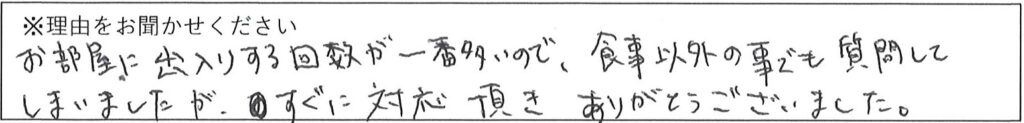 ※理由をお聞かせください
お部屋に出入りする回数が一番多いので、食事以外の事でも質問して
しまいましたが、すぐに対応頂きありがとうございました。